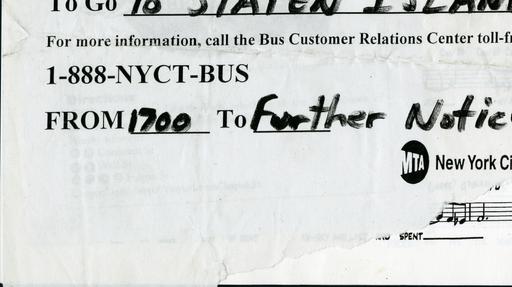 To Go To STATEN ISLAN
For more information, call the Bus Customer Relations Center toll-f
1-888-NYCT-BUS
FROM 1700 To Further Notic
MTA New York Ci
SPENT